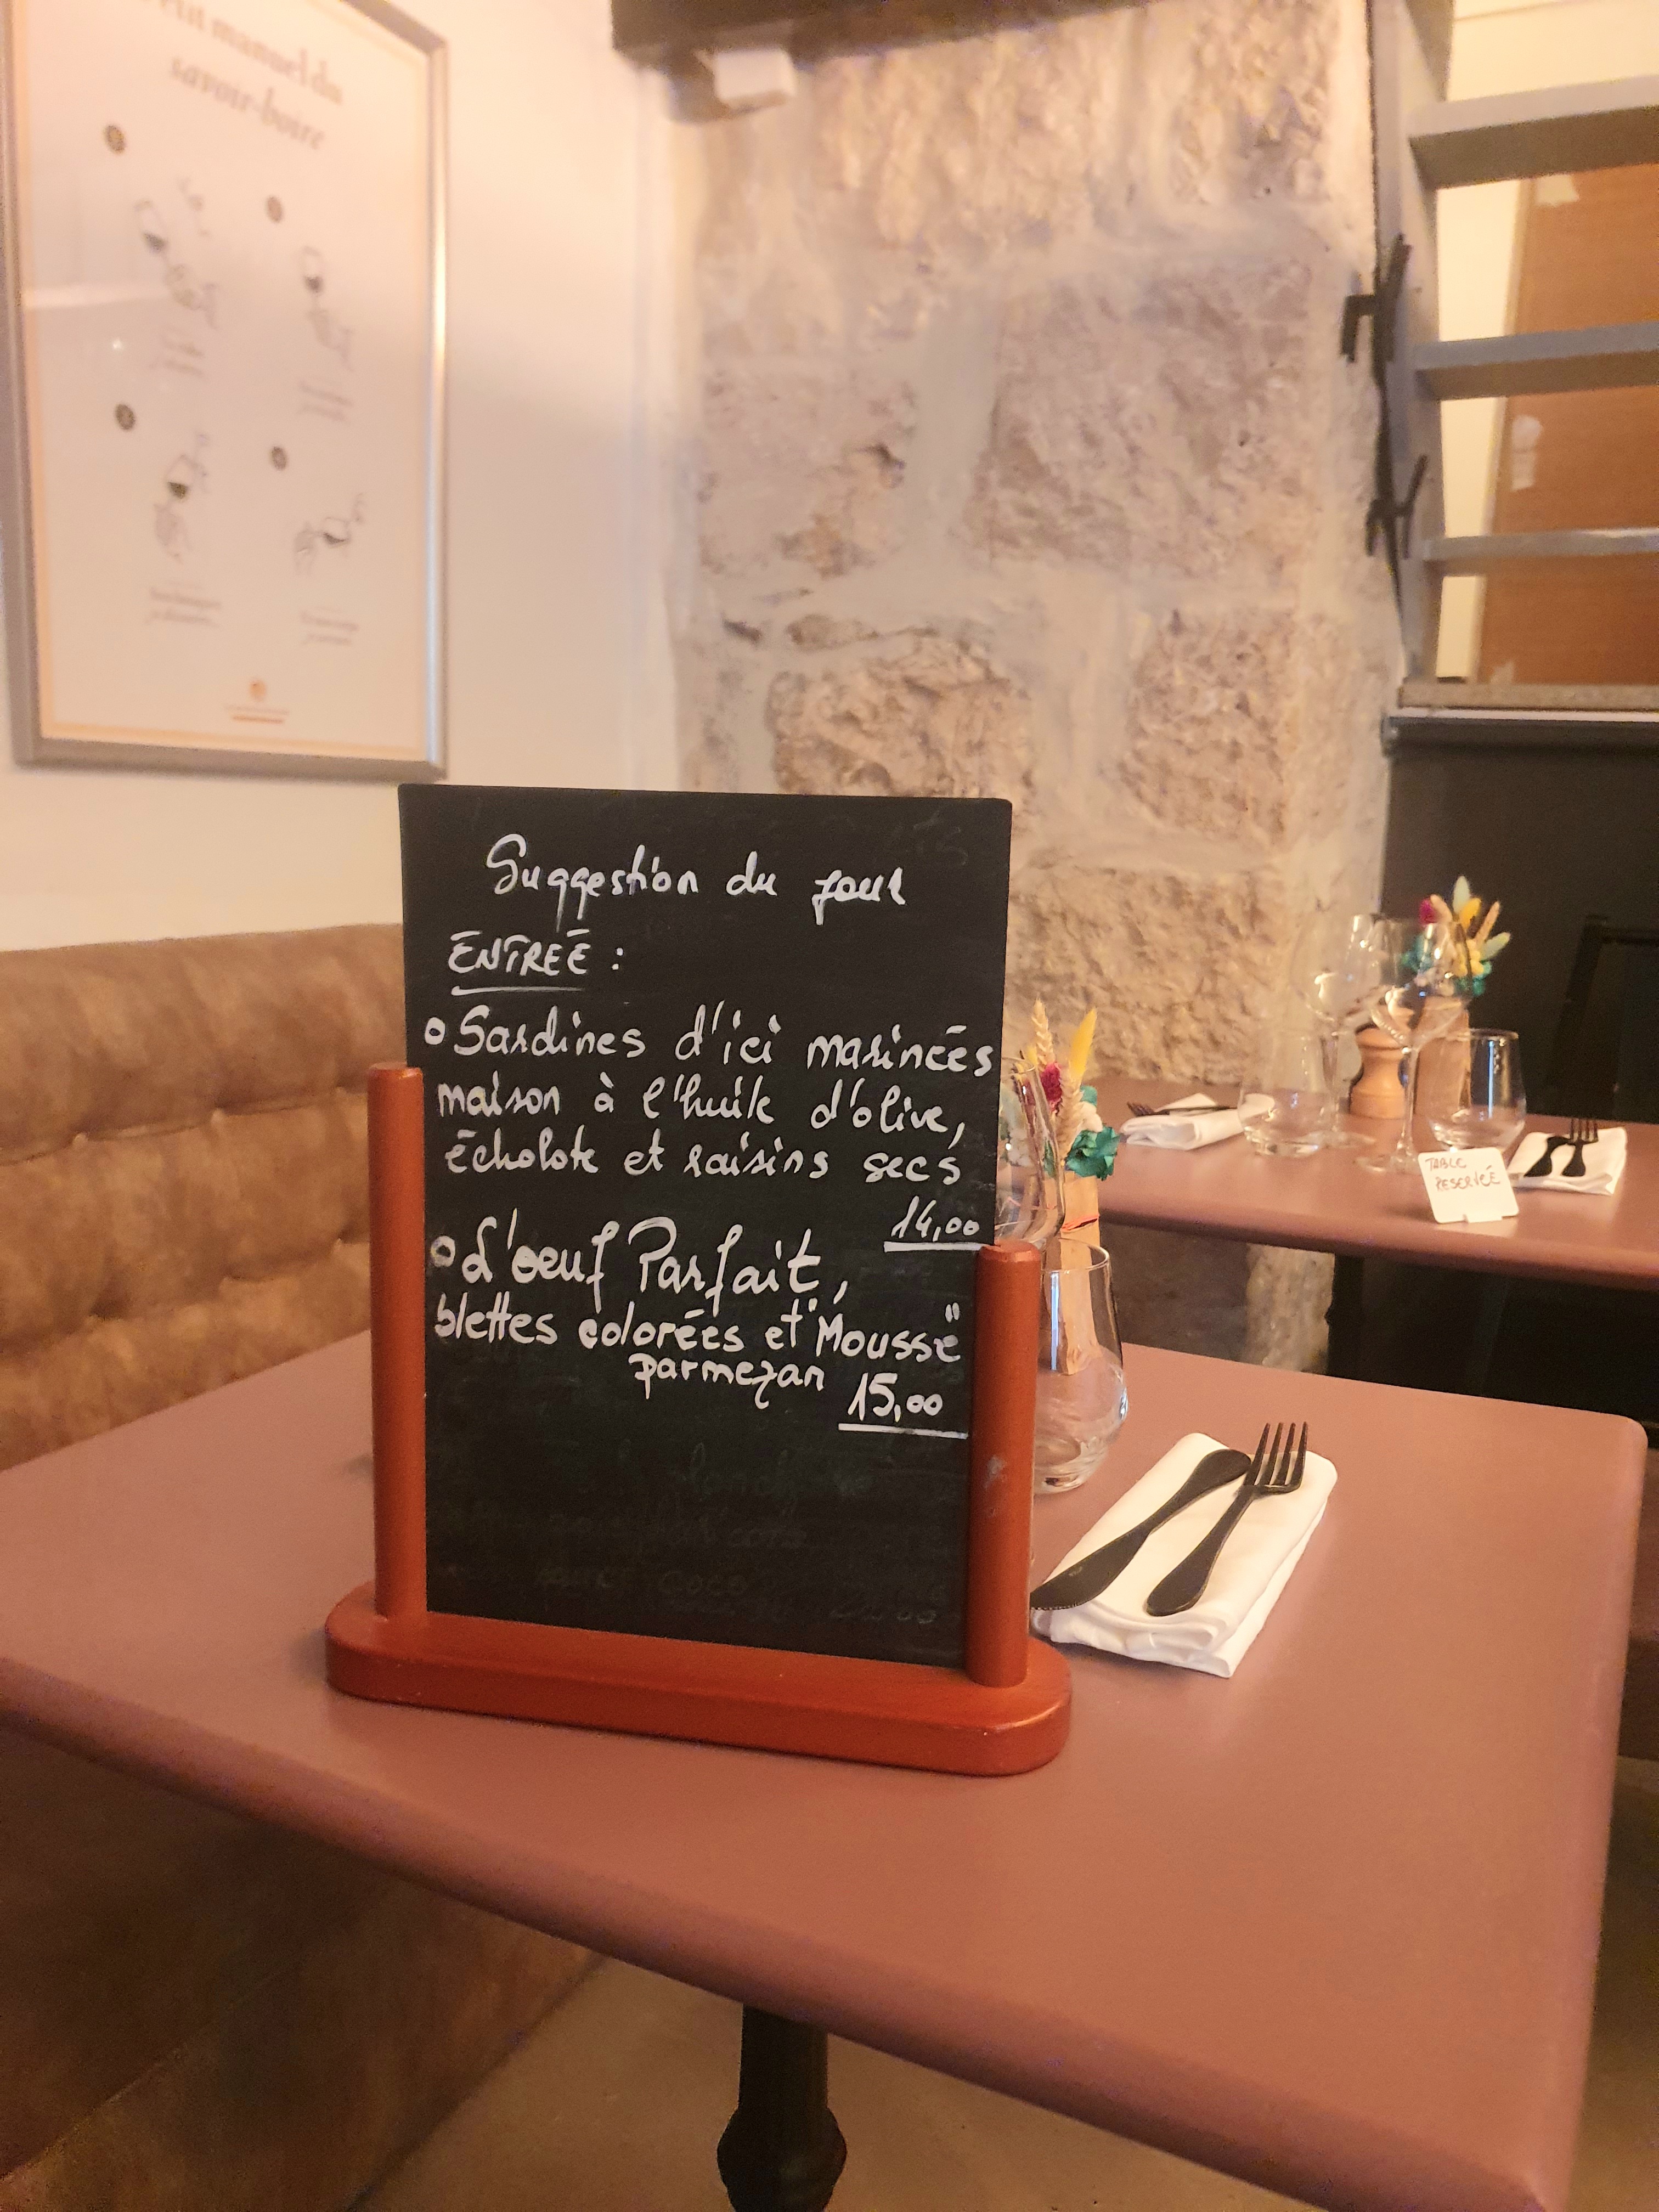 Petit manuel du
savoir-boire
Suggestion du jour
ENTREÉ :
Sardines d'ici marinées
maison à l'huile d'olive,
écholote et raisins secs
14,00
L'oeuf Parfait,
blettes colorées et "Mousse"
parmezan
15,00
TABLE
RESERVÉ
coco